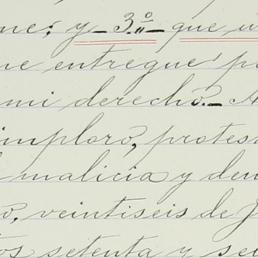 me; y 3.º que u
me entregue po
mi derecho. A
imploro, protes
malicia y dem
o, veintiseis de J
tos setenta y se